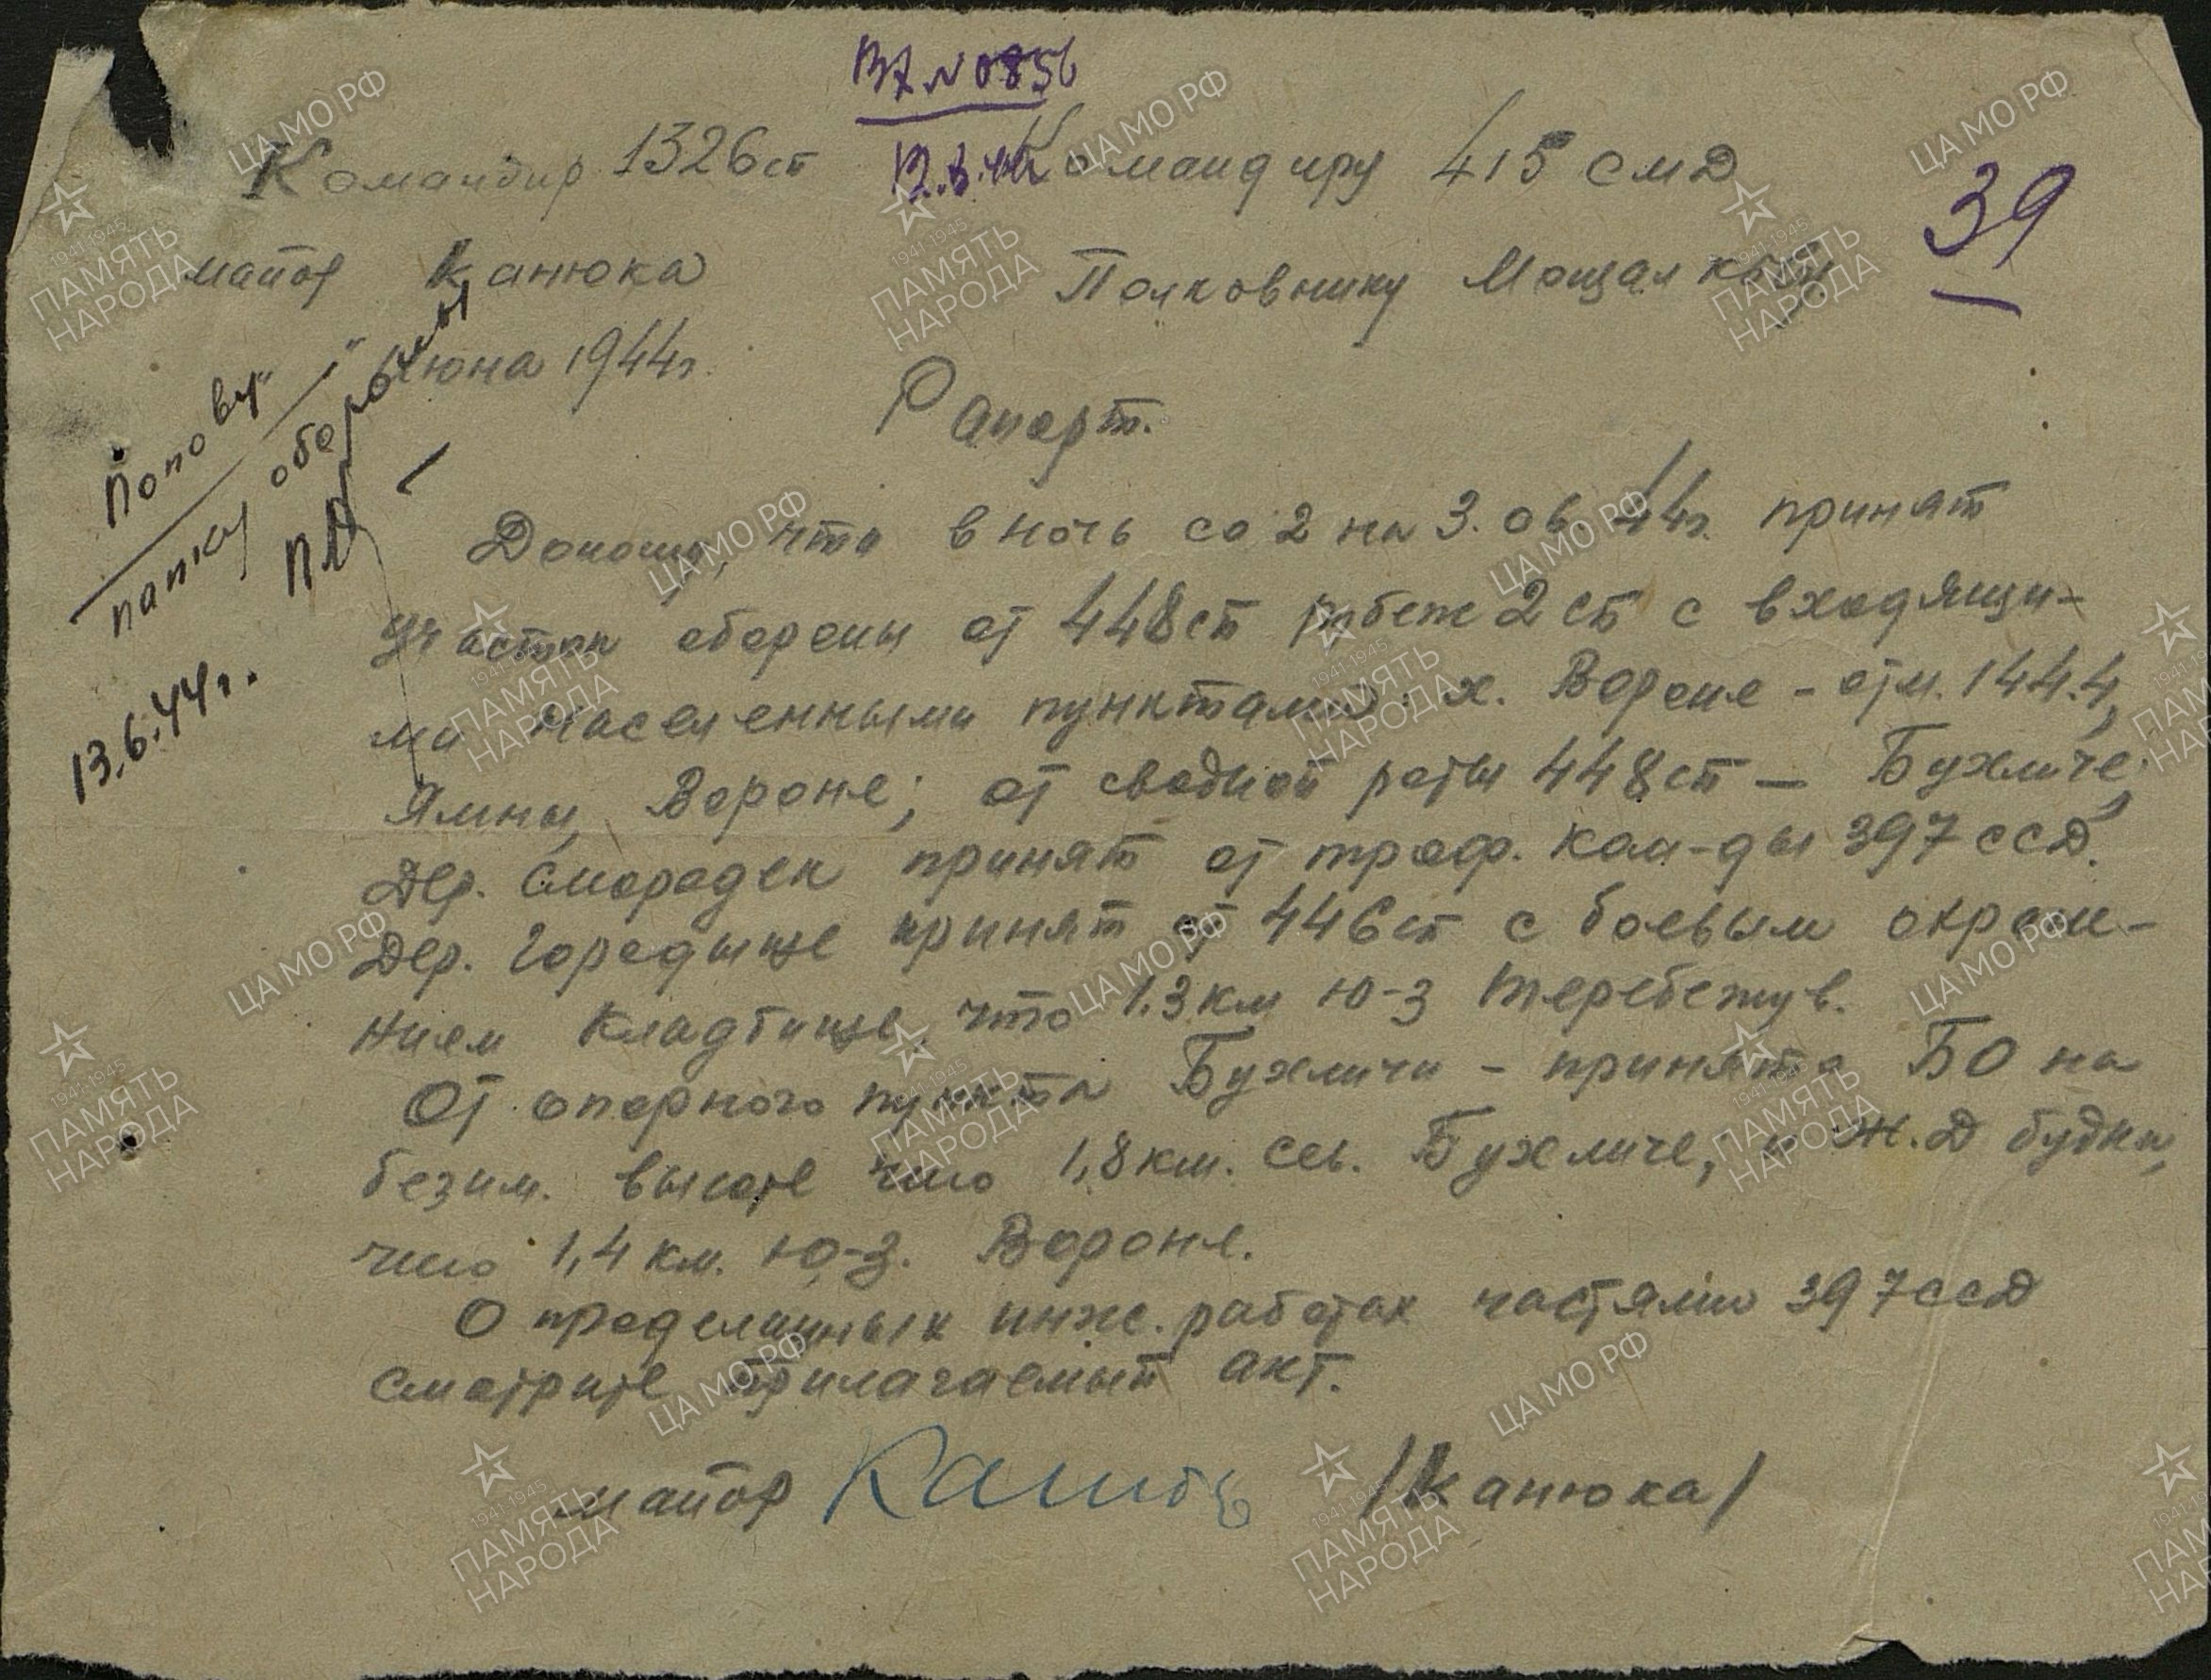 Вх № 0856
12.6.44
39
Командир 1326 сп
Командиру 415 смд
майор Канюка
Полковнику Мощалкову
июня 1944г.
Попову
папку обороны
13.6.44г.
Рапорт.
Доношу, что в ночь со 2 на 3.06.44г. принят
участок обороны от 448сп рубеж 2 сб с входящи-
ми населенными пунктами: х. Вороне - отм. 144.4,
Ямны, Вороне; от сводной роты 448сп – Бухличе,
Дер. Смородск принят от троф. ком-ды 397 ссд.
Дер. Городыще принят от 446сп с боевым охране-
нием Кладбище, что 1.3 км ю-з Теребежув.
От опорного пункта Бухличи - принято БО на
безим. высоте что 1,8 км. сев. Бухличе, и Ж.Д будки,
что 1,4 км. ю-з. Вороне.
О проделанных инж. работах частями 397ссд
смотрите прилагаемый акт.
майор
/Канюка/
ЦА МО РФ
1941 1945
ПАМЯТЬ
НАРОДА